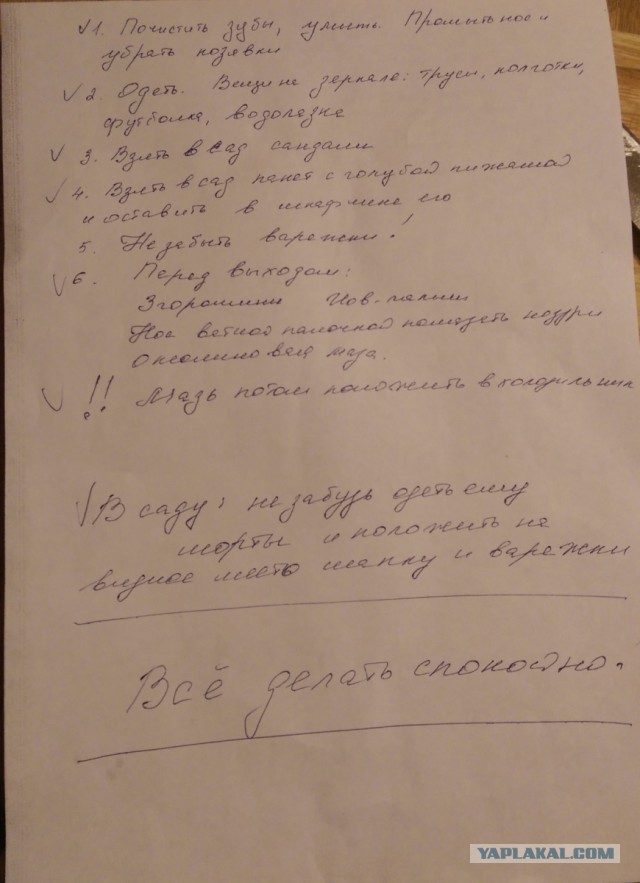 1. Почистить зубы, умыть. Промыть нос и
убрать козявки
2. Одеть. Вещи на зеркале: трусы, колготки,
футболка, водолазка
3. Взять в сад сандали
4. Взять в сад пакет с голубой пижамой
и оставить в шкафчике его
5. Не забыть варежки!
6. Перед выходом:
3 горошины
Нос ватной палочкой помазать ноздри
Оксолиновая мазь.
!! Мазь потом положить в холодильник
В саду: не забудь одеть ему
шорты и положить на
видное место шапку и варежки
Всё делать спокойно.
YAPLAKAL.COM